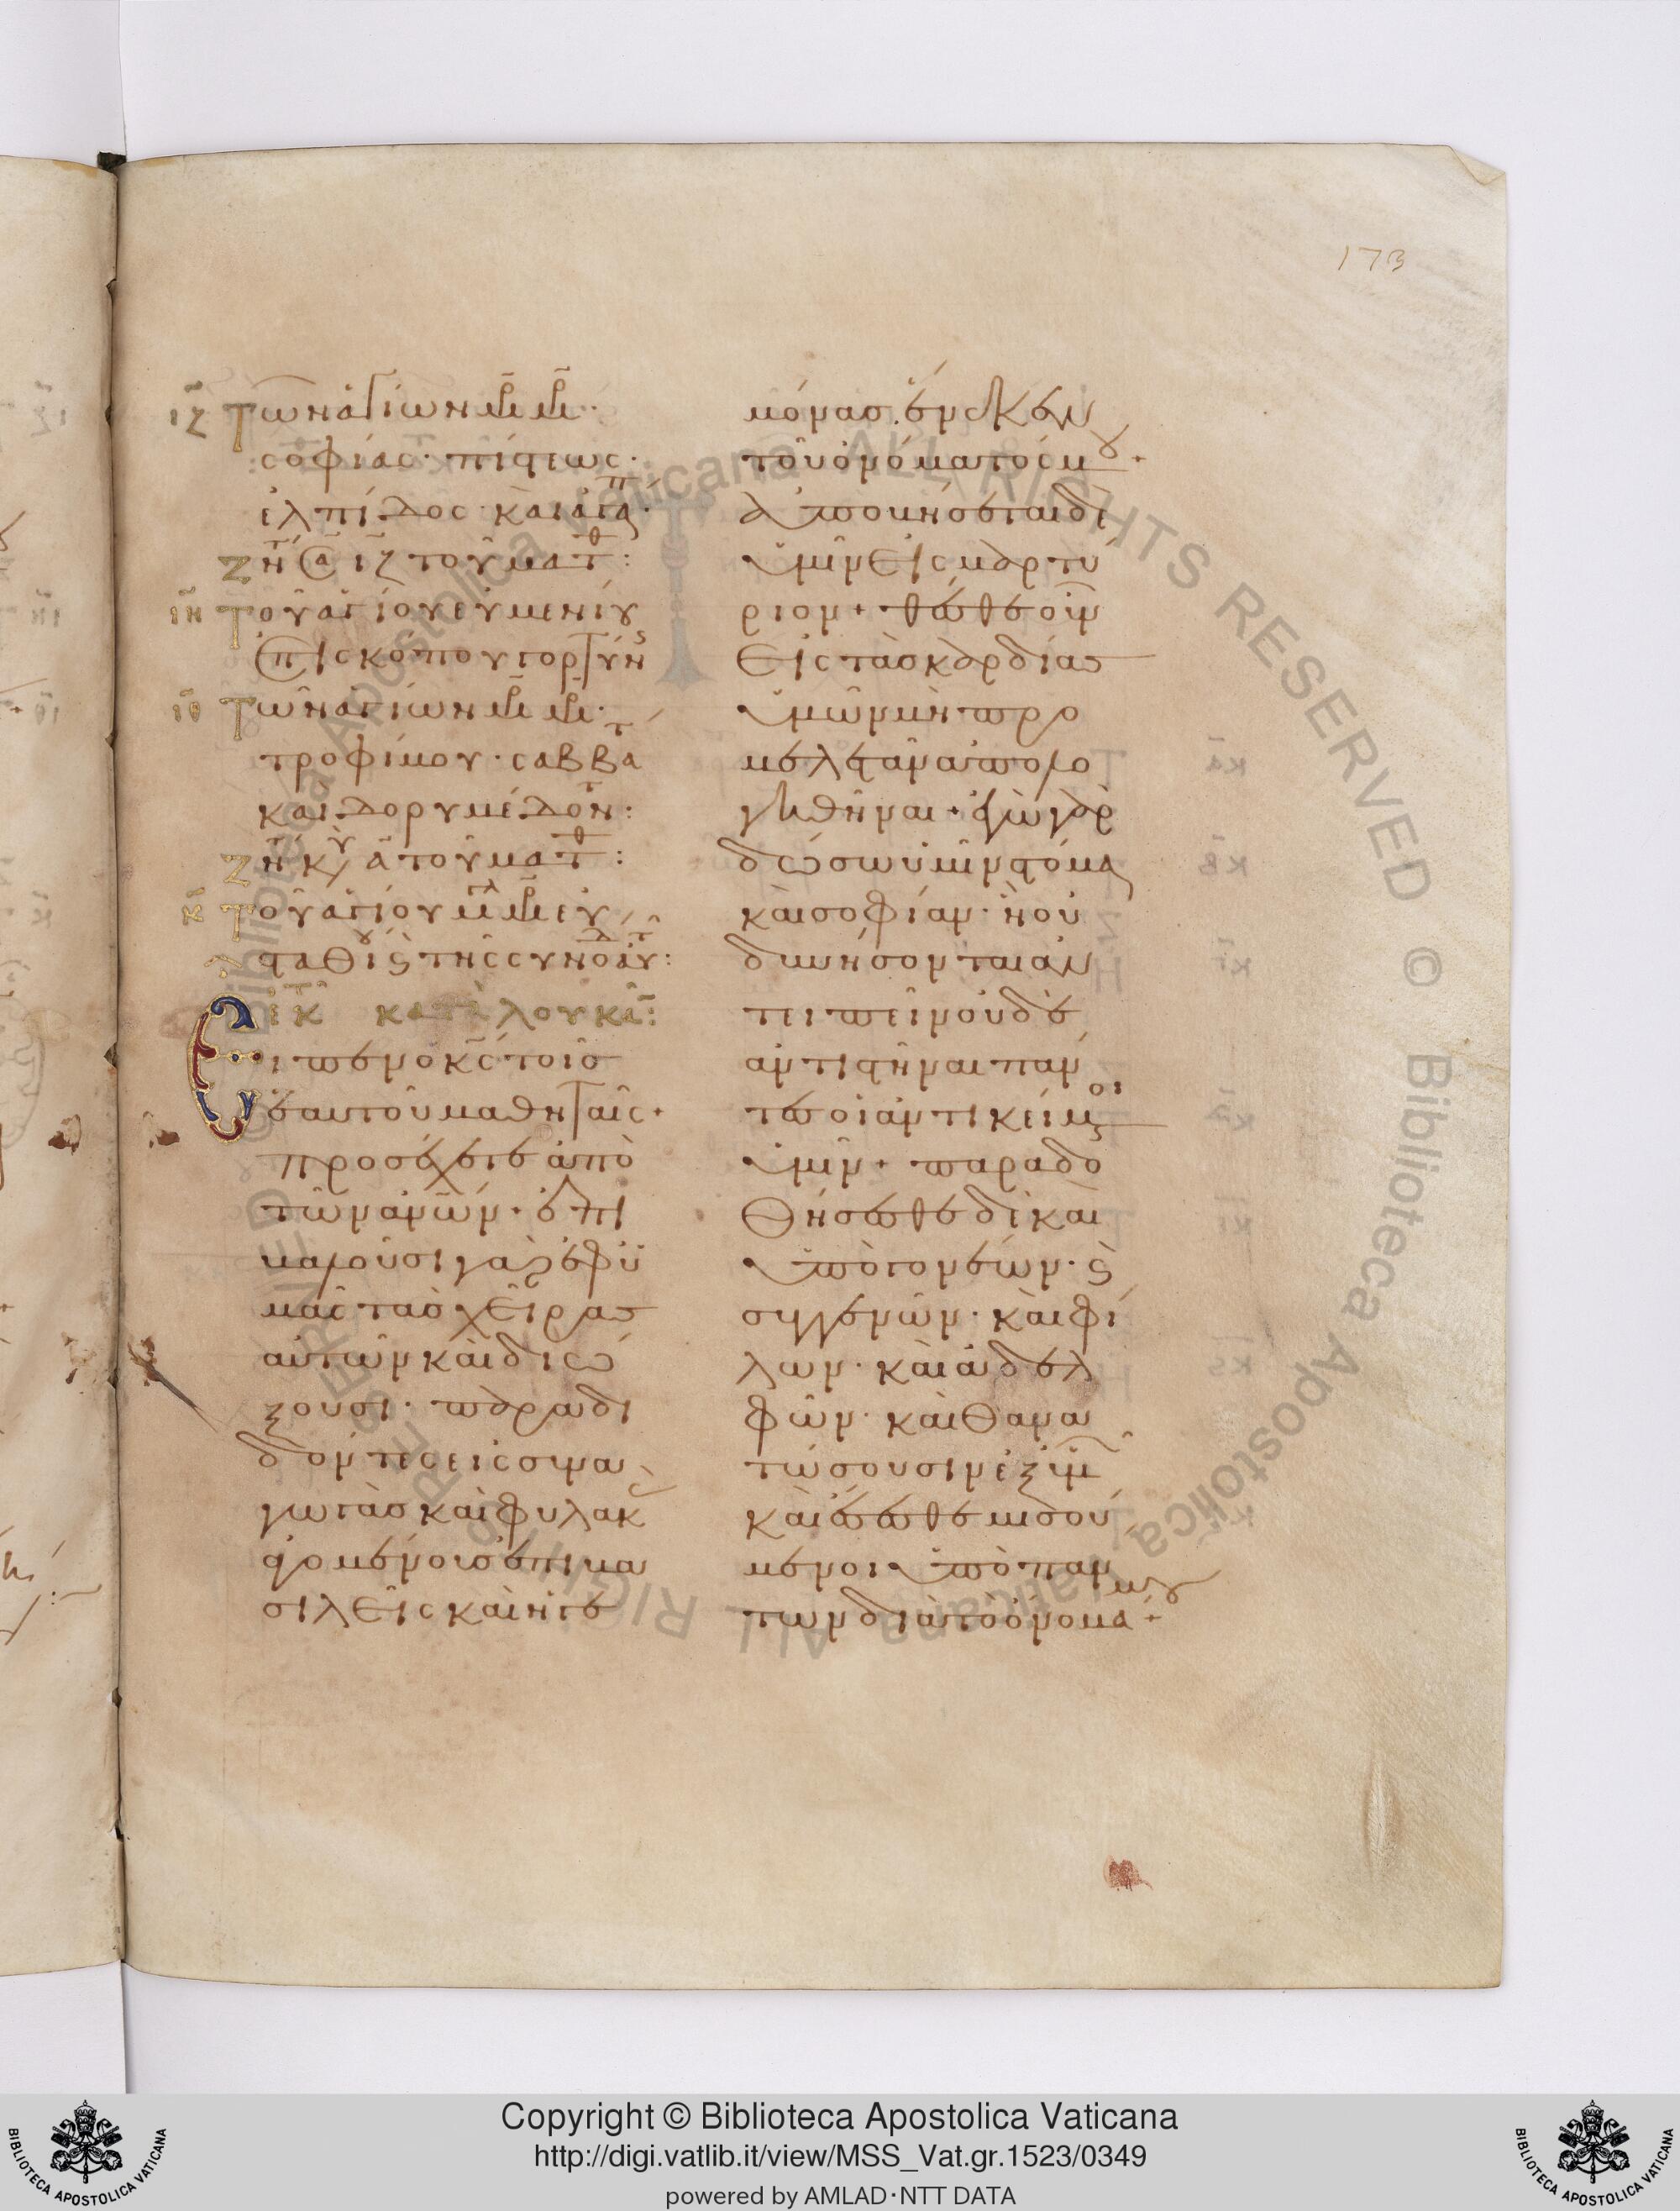 173
ιζ Τῶν ἁγίων μρ μρ·
σοφίας· πίστεως·
ἐλπίδος· καὶ ἀγάπ·
ζητ Σα ιζ τοῦ ματθ:
ιη Τοῦ ἁγίου εὐμενίου
ἐπισκόπου γορτύνς
ιθ Τῶν ἁγίων μρ μρ·
τροφίμου· σαββατ
καὶ δορυμέδοντ:
ζητ κυ α τοῦ ματθ:
κ Τοῦ ἁγίου μγλ μρ εὐ
σταθίου ϛ τῆς συνοδ αυτ:
ἐκ τ κατὰ λουκᾶν:
Εἶπεν ὁ κς τοῖς
ἑαυτοῦ μαθηταῖς·
προσέχετε ἀπὸ
τῶν ἀνῶν· ἐπι
βαλοῦσι γὰρ ἐφ ὑ
μᾶς τὰς χεῖρας
αὐτῶν καὶ διώ
ξουσι· παραδι
δόντες εἰς συνα
γωγὰς καὶ φυλακ
ἀγομένους ἐπὶ βα
σιλεῖς καὶ ἡγε
μόνας. ἕνεκεν
τοῦ ὀνόματός μου·
ἀποβήσεται δὲ
ὑμῖν εἰς μαρτύ
ριον· θέσθε οὖν
εἰς τὰς καρδίας
ὑμῶν μὴ προ
μελετᾶν ἀπολο
γηθῆναι· ἐγὼ γὰρ
δώσω ὑμῖν στόμα
καὶ σοφίαν· ἧ οὐ
δυνήσονται ἀν
τειπεῖν οὐδὲ
ἀντιστῆναι πάν
τες οἱ ἀντικείμενοι
ὑμῖν· παραδο
θήσεσθε δὲ καὶ
ὑπὸ γονέων· ϛ
συγγενῶν· καὶ φί
λων· καὶ ἀδελ
φῶν· καὶ θανα
τώσουσιν ἐξ ὑμ
καὶ ἔσεσθε μισού
μενοι ὑπὸ πάν
των διὰ τὸ ὄνομά μου·
Copyright © Biblioteca Apostolica Vaticana
http://digi.vatlib.it/view/MSS_Vat.gr.1523/0349
powered by AMLAD·NTT DATA
BIBLIOTECA APOSTOLICA VATICANA
BIBLIOTECA APOSTOLICA VATICANA